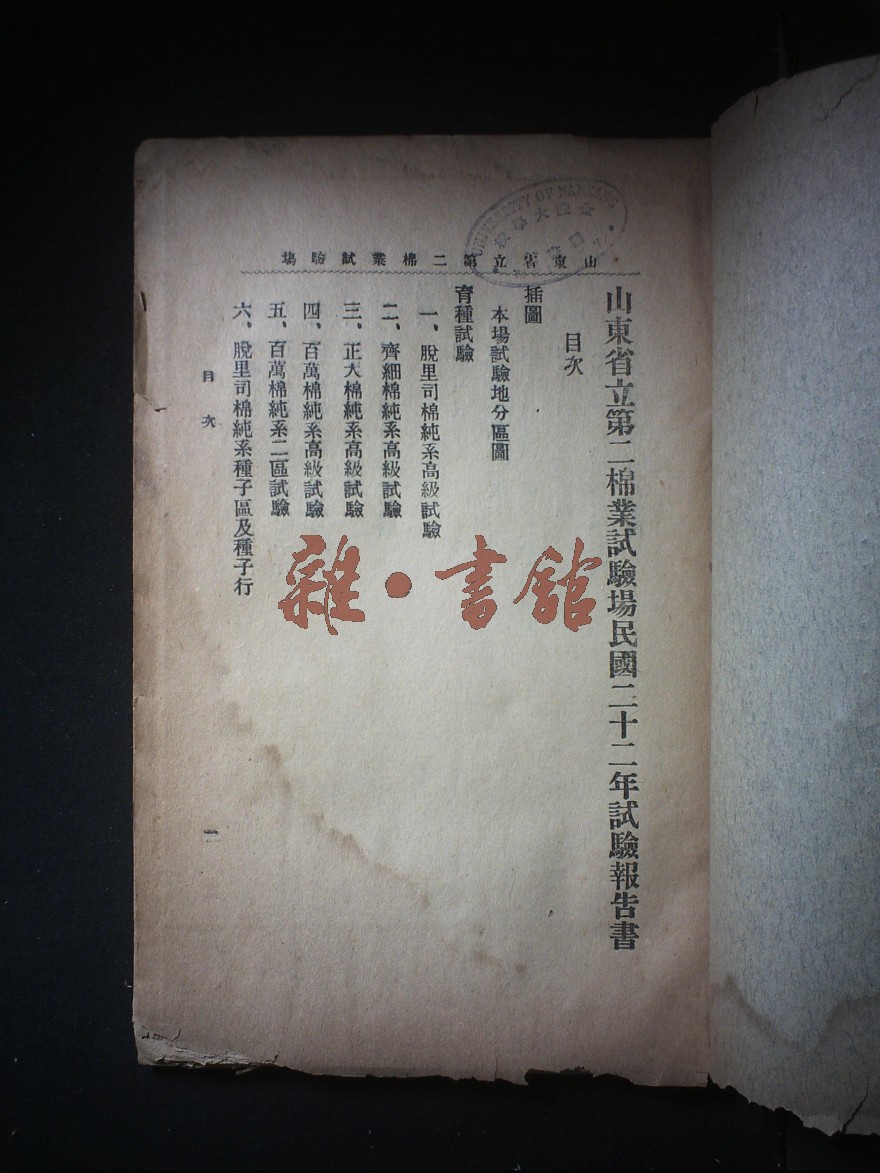 山東省立第二棉業試驗場
UNIVERSITY OF NANKING
山東省立第二棉業試驗場民國二十二年試驗報告書
目次
插圖
本場試驗地分區圖
育種試驗
一、脫里司棉純系高級試驗
二、齊細棉純系高級試驗
三、正大棉純系高級試驗
四、百萬棉純系高級試驗
五、百萬棉純系二區試驗
六、脫里司棉純系種子區及種子行
目次
雜·書館